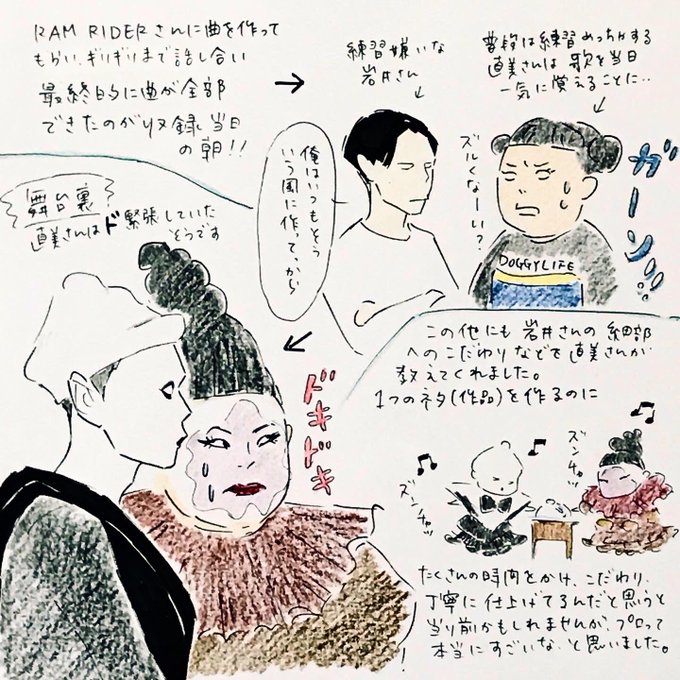 RAM RIDERさんに曲を作って
もらい、ギリギリまで話し合い
最終的に曲が全部
できたのが収録当日
の朝!!
→
練習嫌いな
岩井さん
普段は練習めっちゃする
直美さんは歌を当日
一気に覚えることに…
俺はいつもそう
いう風に作って、から
ズルくなーい?
ガーンッ!!
DOGGYLIFE
舞台裏
直美さんはド緊張していた
そうです
ドキドキ
この他にも岩井さんの細部
へのこだわりなどを直美さんが
教えてくれました。
1つのネタ(作品)を作るのに
ズンチャッ
ズンチャッ
たくさんの時間をかけ、こだわり、
丁寧に仕上げてるんだと思うと
当り前かもしれませんが、プロって
本当にすごいな、と思いました。